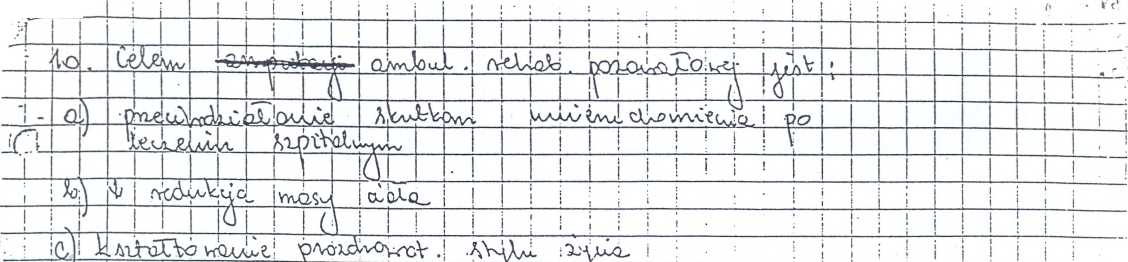 10. Celem ambul. rehab. pozawałowej jest:
a) przeciwdziałanie skutkom unieruchomienia po
leczeniu szpitalnym
b) ↓ redukcja masy ciała
c) kształtowanie prozdrowot. stylu życia